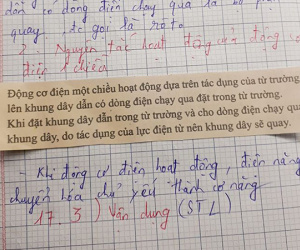 dẫn có dòng điện chạy qua là bộ phận
quay đc gọi là rôto
2. Nguyên tắc hoạt động của động cơ
điện 1 chiều
Động cơ điện một chiều hoạt động dựa trên tác dụng của từ trường
lên khung dây dẫn có dòng điện chạy qua đặt trong từ trường.
Khi đặt khung dây dẫn trong từ trường và cho dòng điện chạy qua
khung dây, do tác dụng của lực điện từ nên khung dây sẽ quay.
- Khi động cơ điện hoạt động, điện năng
chuyển hóa chủ yếu thành cơ năng
17.3) Vận dụng (STL)